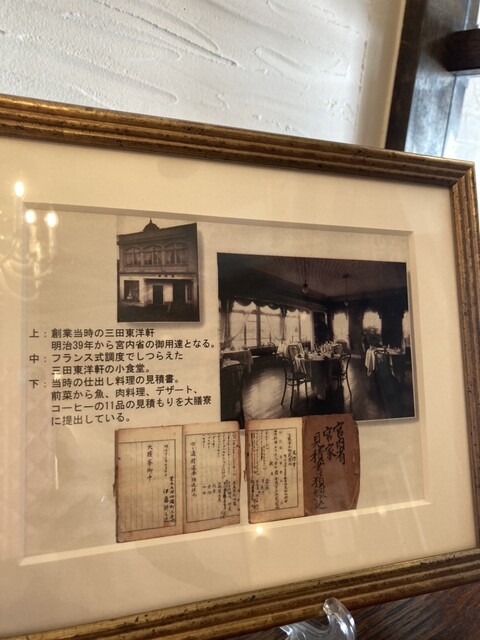 上：創業当時の三田東洋軒
明治39年から宮内省の御用達となる。
中：フランス式調度でしつらえた
三田東洋軒の小食堂。
下：当時の仕出し料理の見積書。
前菜から魚、肉料理、デザート、
コーヒーの11品の見積もりを大膳寮
に提出している。
大膳寮御中
宮内省
宮家